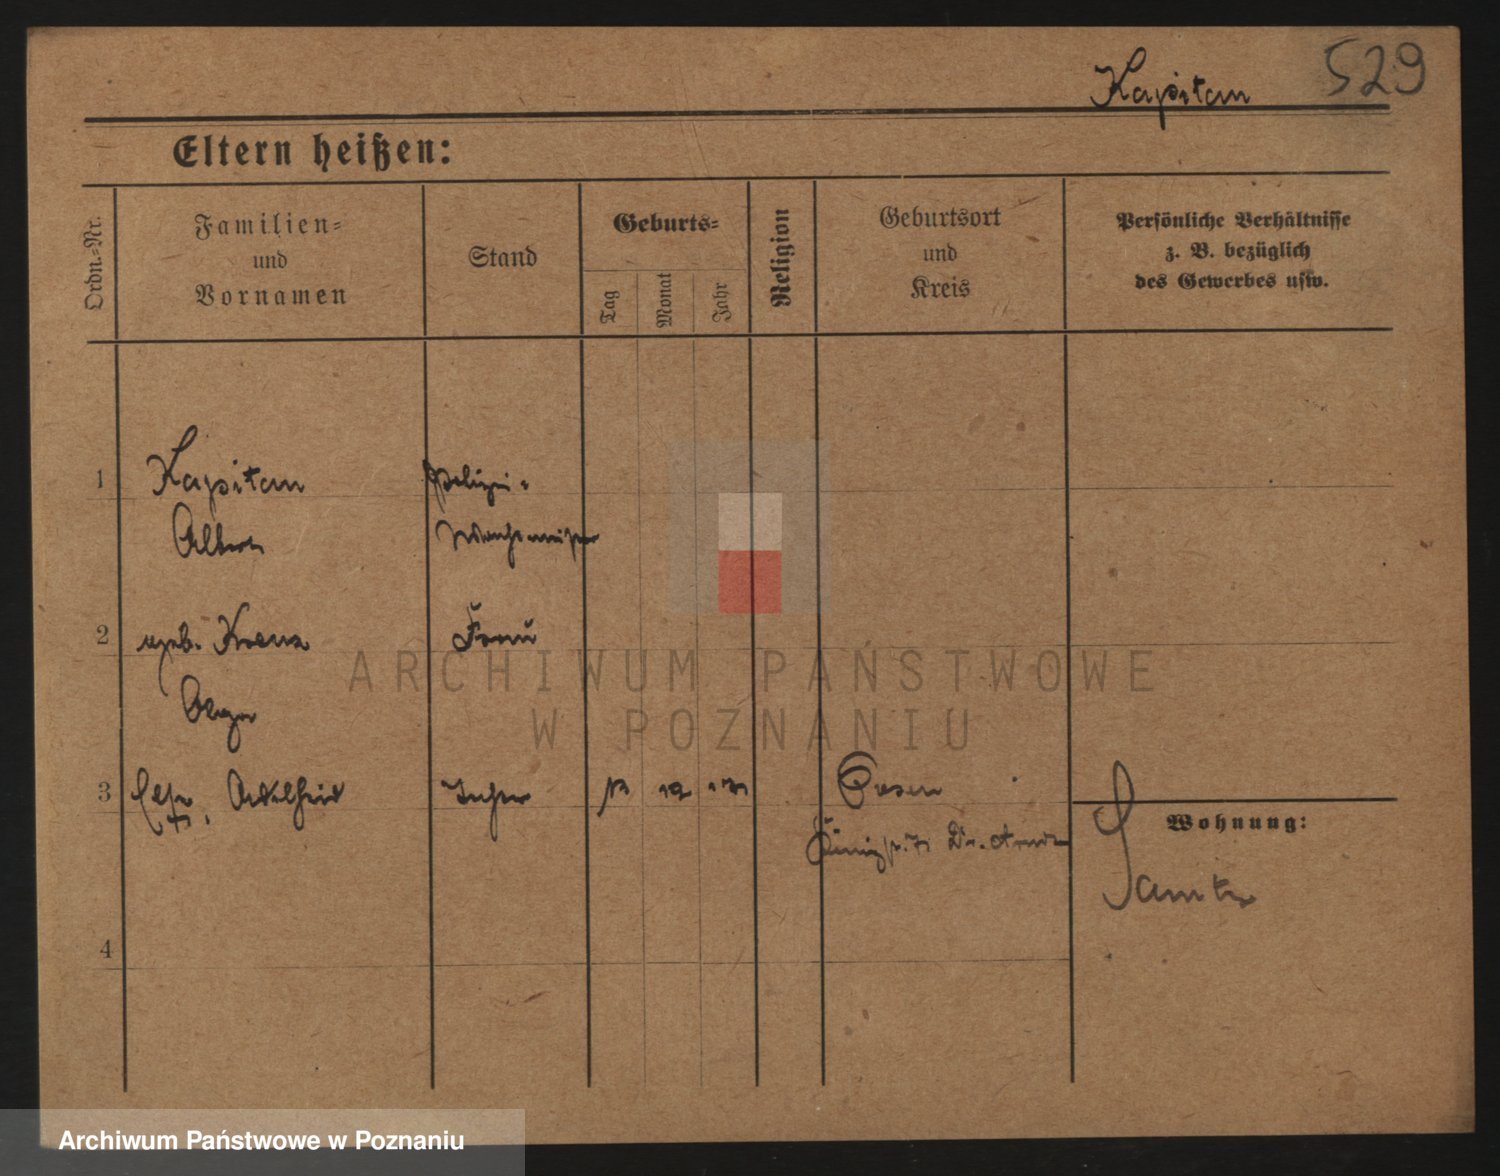 Kapitan 529
Eltern heißen:
Ordn.-Nr.
Familien-
und
Vornamen
Stand
Geburts-
Tag
Monat
Jahr
Religion
Geburtsort
und
Kreis
Persönliche Verhältnisse
z. B. bezüglich
des Gewerbes usw.
1 Kapitan Polizei-
Albert Wachtmeister
2 geb. Frau
3 Adelheid Posen
Wohnung:
4
ARCHIWUM PAŃSTWOWE
W POZNANIU
Archiwum Państwowe w Poznaniu